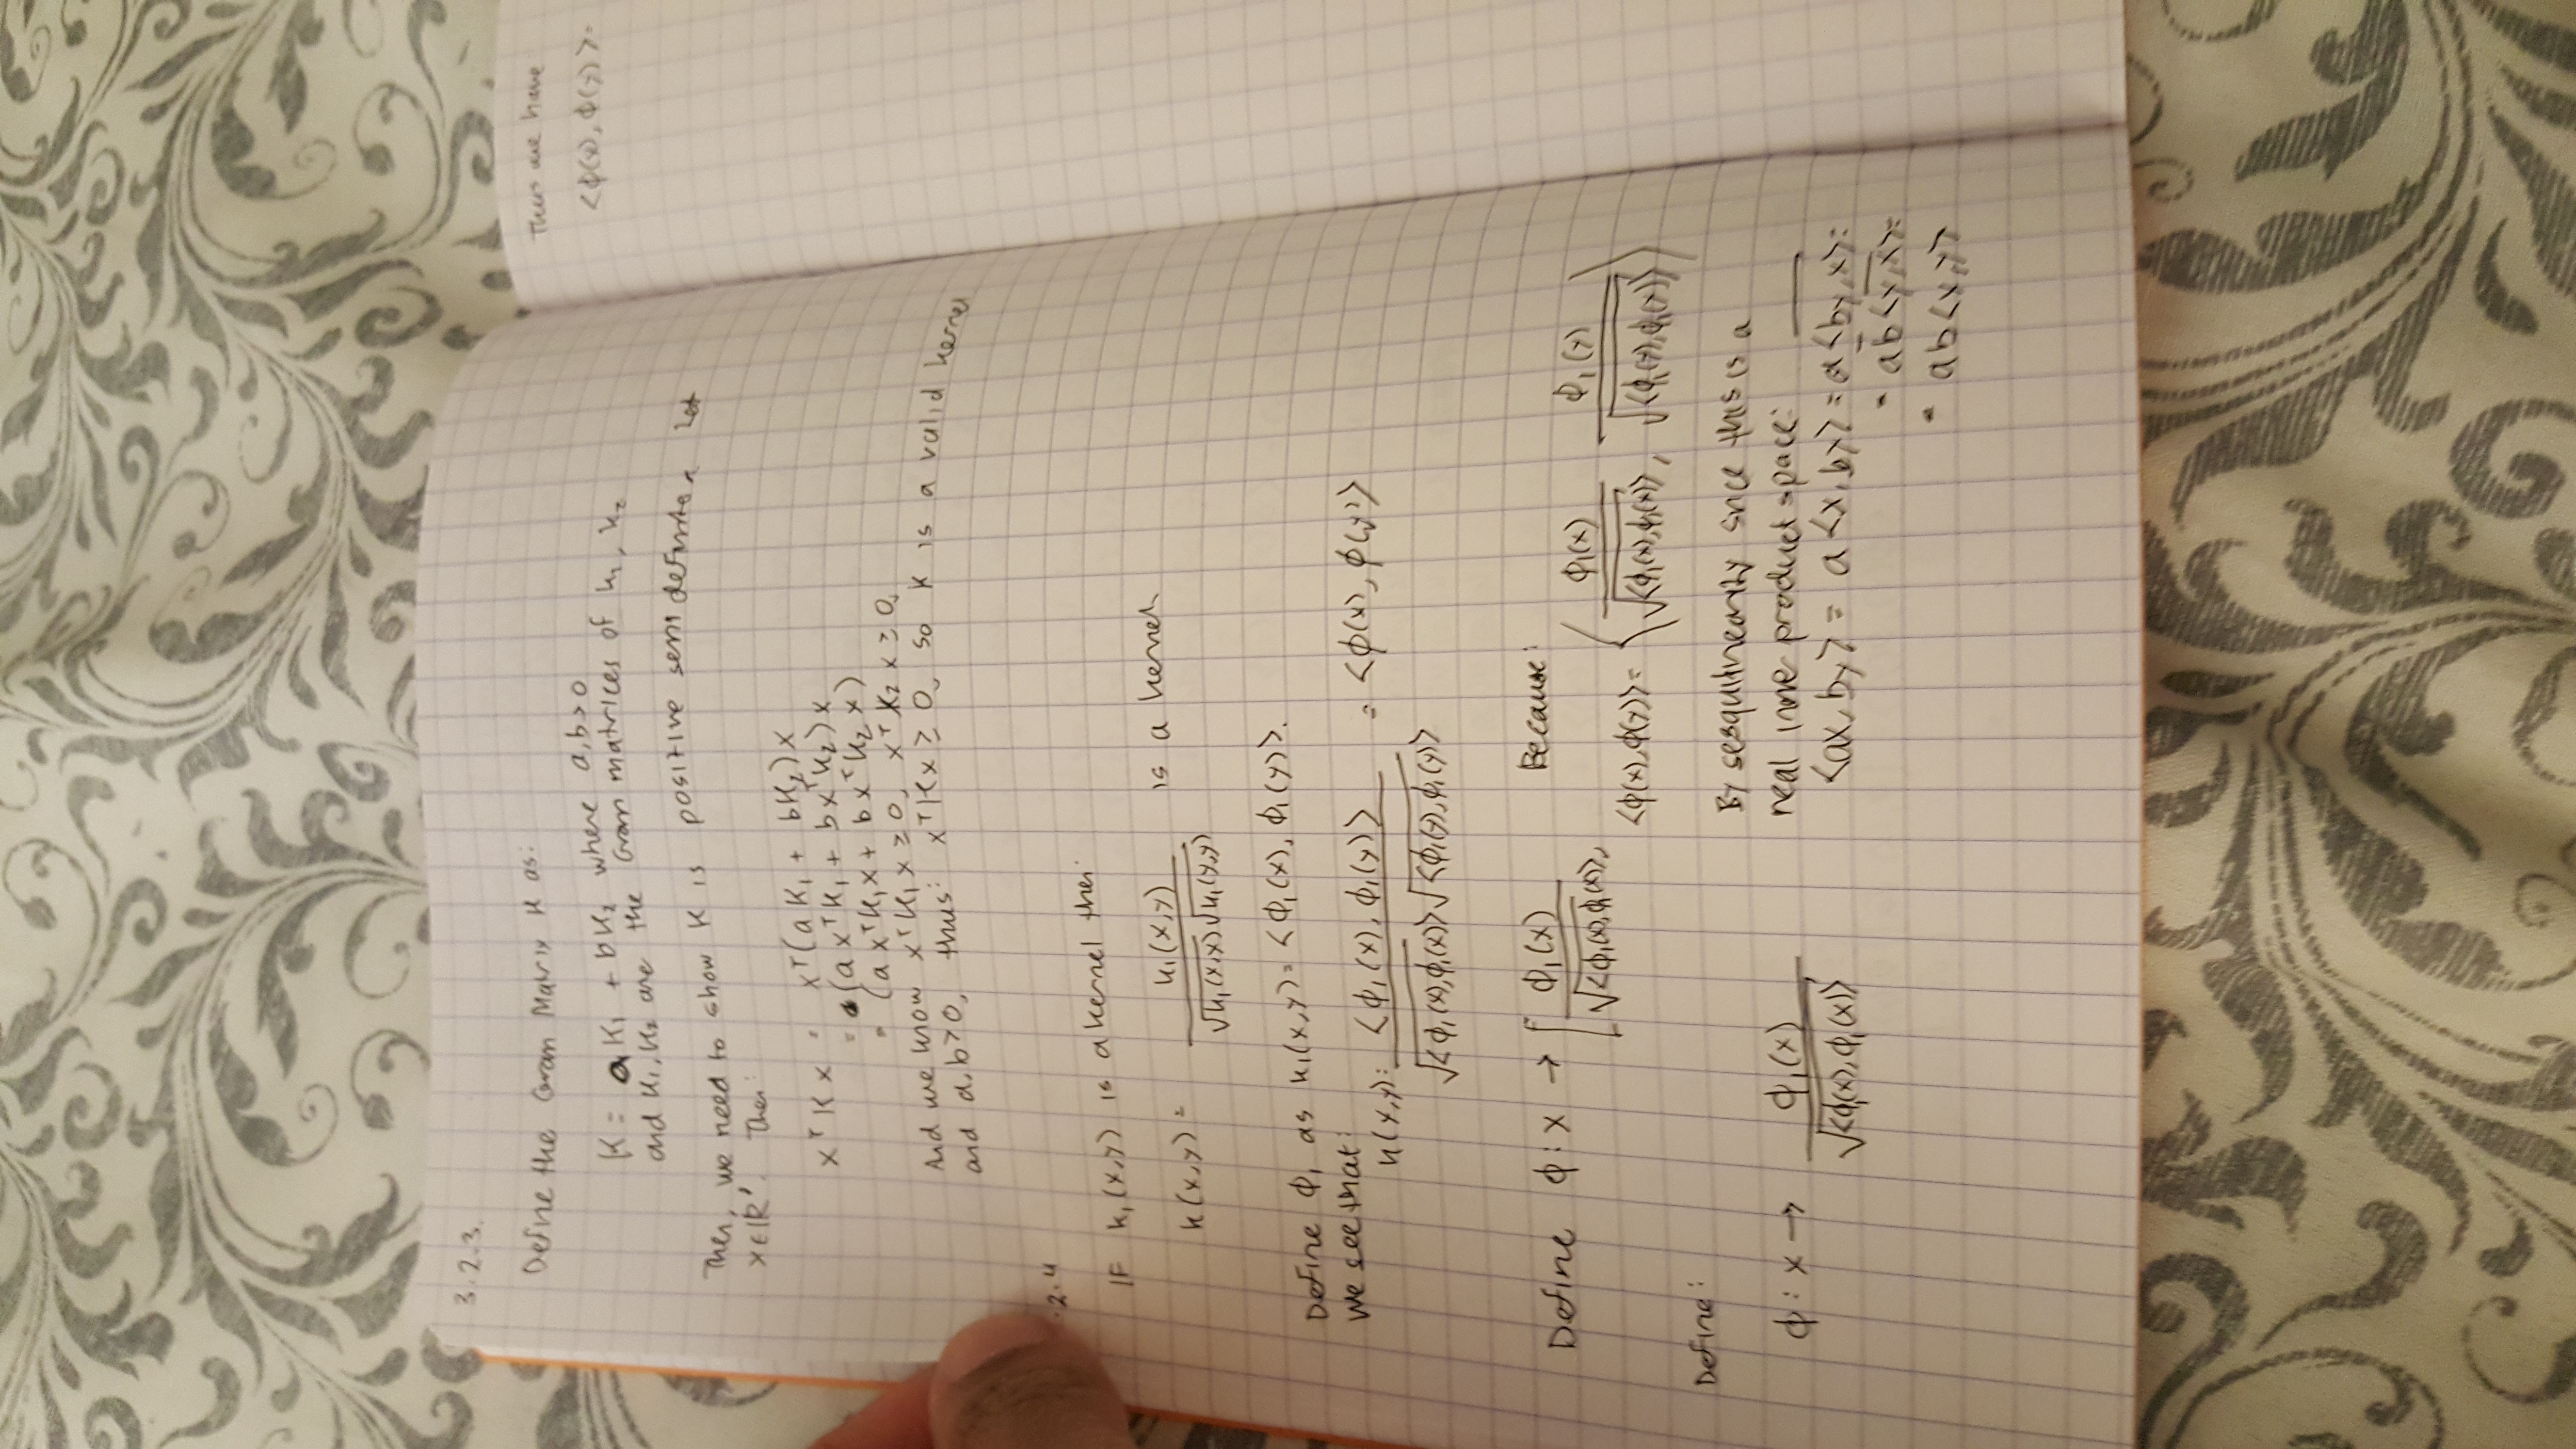 3.2.3.
Define the Gram Matrix K as:
K = aK₁ + bK₂ where a,b>0
and K₁, K₂ are the Gram matrices of k₁, k₂
Then, we need to show K is positive semi definite. Let
x∈ℝ'. Then:
xᵀKx = xᵀ(aK₁ + bK₂)x
= (axᵀK₁ + bxᵀK₂)x
= (axᵀK₁x + bxᵀK₂x)
And we know xᵀK₁x ≥ 0, xᵀK₂x ≥ 0,
and a,b>0, thus: xᵀKx ≥ 0, so K is a valid kernel
.2.4
IF k₁(x,y) is a kernel then:
k(x,y) = k₁(x,y) / √k₁(x,x) √k₁(y,y) is a kernel
Define ϕ₁ as k₁(x,y) = <ϕ₁(x), ϕ₁(y)>.
We see that:
k(x,y) = <ϕ₁(x), ϕ₁(y)> / √<ϕ₁(x),ϕ₁(x)> √<ϕ₁(y),ϕ₁(y)> = <ϕ(x), ϕ(y)>
Define ϕ: x → [ ϕ₁(x) / √<ϕ₁(x),ϕ₁(x)>,
Define:
ϕ: x → ϕ₁(x) / √<ϕ₁(x), ϕ₁(x)>
Because:
<ϕ(x),ϕ(y)> = < ϕ₁(x) / √<ϕ₁(x),ϕ₁(x)>, ϕ₁(y) / √<ϕ₁(y),ϕ₁(y)> >
By sesquilinearity since this is a
real inner product space:
<ax, by> = a<x, by> = a<by,x> =
= ab<y,x> =
= ab<x,y>
Thus we have
<ϕ(x), ϕ(y)> =